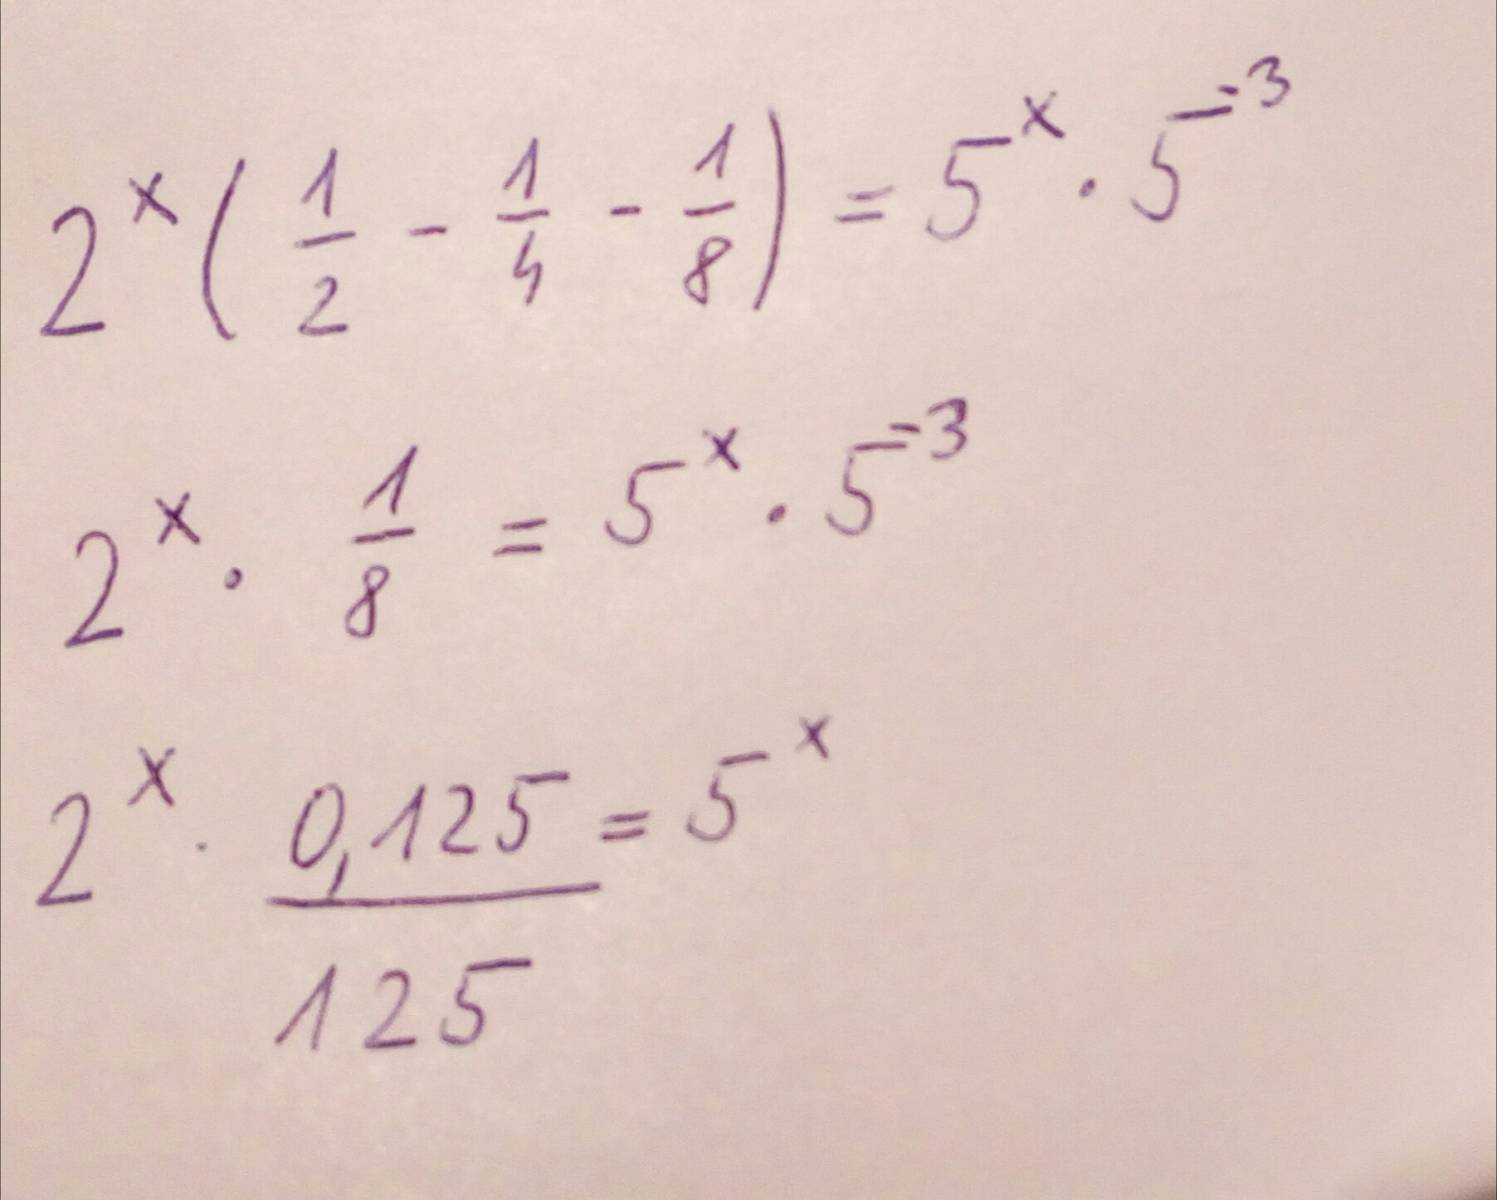 2^x (1/2 - 1/4 - 1/8) = 5^x · 5^-3
2^x · 1/8 = 5^x · 5^-3
2^x · 0,125/125 = 5^x